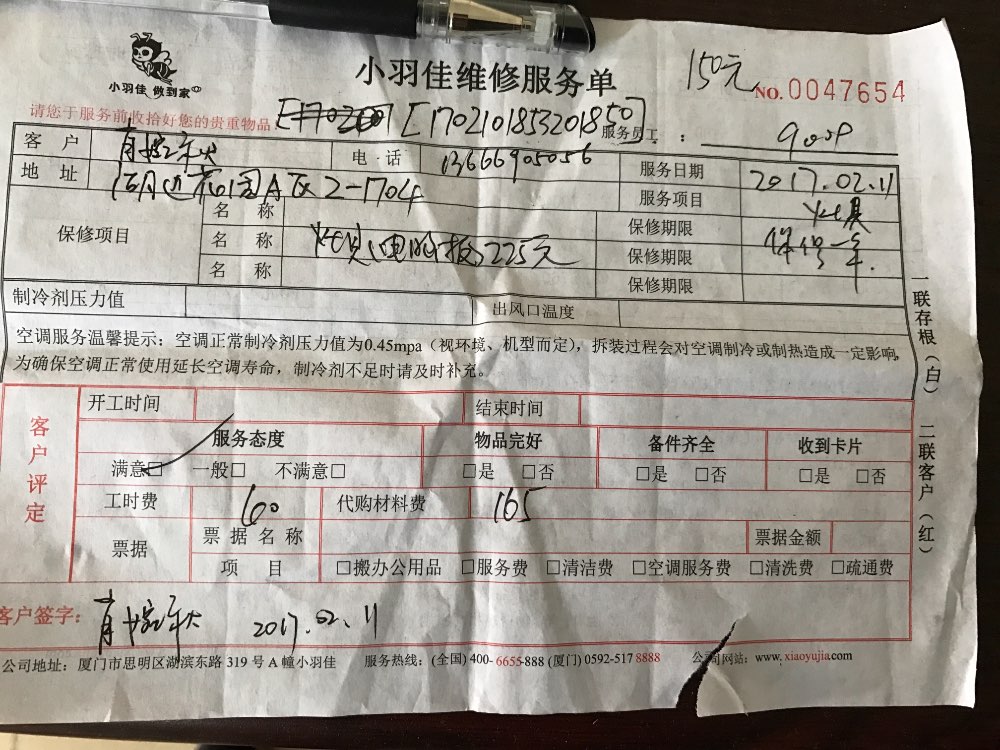 小羽佳 做到家
小羽佳维修服务单
150元
NO. 0047654
请您于服务前收拾好您的贵重物品!
[1702101853201850]
服务员工 : 9008
客 户
电 话 13666905056
服务日期 2017.02.11
地 址 花园A区2-1704
服务项目 灶具
保修项目
名 称
保修期限
名 称 灶具(电脑板)225元
保修期限 保修一年.
名 称
保修期限
制冷剂压力值
出风口温度
空调服务温馨提示：空调正常制冷剂压力值为0.45mpa（视环境、机型而定），拆装过程会对空调制冷或制热造成一定影响，
为确保空调正常使用延长空调寿命，制冷剂不足时请及时补充。
客户评定
开工时间
结束时间
服务态度
物品完好
备件齐全
收到卡片
满意□ 一般□ 不满意□
□是 □否
□是 □否
□是 □否
工时费 60
代购材料费 165
票据
票据名称
票据金额
项 目
□搬办公用品 □服务费 □清洁费 □空调服务费 □清洗费 □疏通费
客户签字：
2017.02.11
公司地址：厦门市思明区湖滨东路 319 号 A 幢小羽佳
服务热线：(全国) 400-6655-888 (厦门) 0592-517 8888
公司网站：www.xiaoyujia.com
一联存根（白） 二联客户（红）